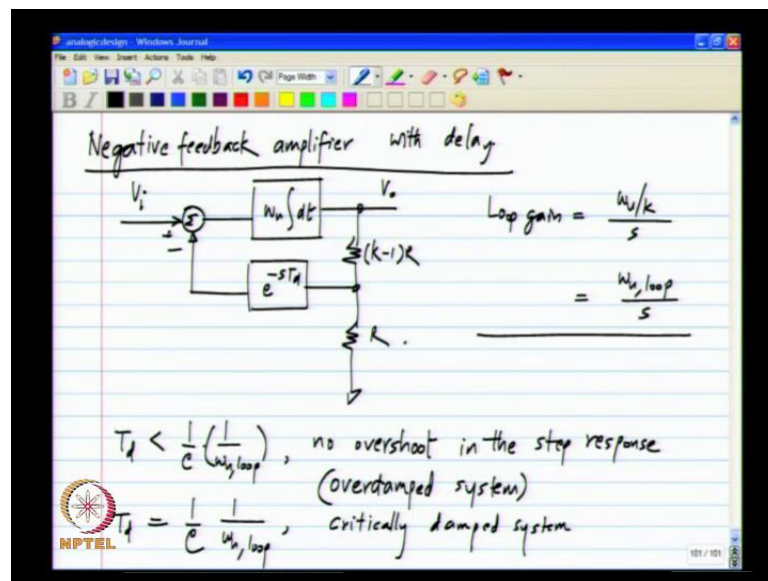 analogicdesign - Windows Journal
File Edit View Insert Actions Tools Help
Page Width
B I
Negative feedback amplifier with delay
Vi
+
−
Σ
ωu∫dt
Vo
(k-1)R
e^-sTd
R.
Loop gain = ωu/k / s
= ωu,loop / s
Td < 1/e (1/ωu,loop), no overshoot in the step response
(overdamped system)
Td = 1/e 1/ωu,loop, critically damped system
NPTEL
101 / 101